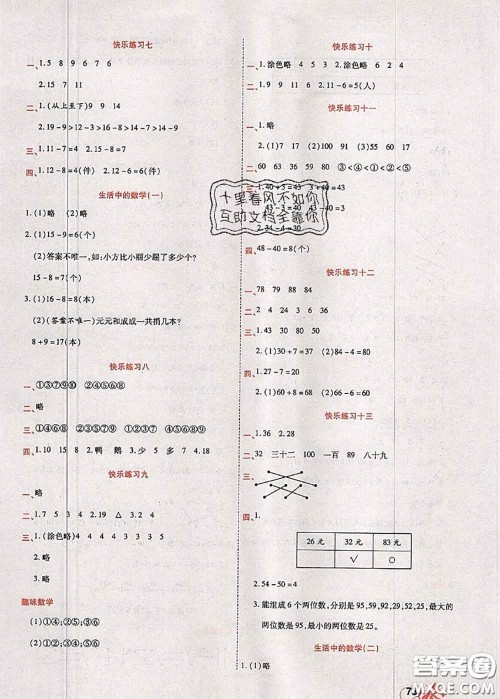 快乐练习七
一、1.5 8 9 6 7 6
2.15 7 11
二、1.(从上至下)9 9 14
2.19-9>12-3>16-8>14-7>9-4
三、1.12-8=4(件) 2.12-6=6(件)
生活中的数学(一)
1.(1)略 (2)略
2.(1)15-9=6(个)
(2)(答案不唯一,如:小方比小丽少踢了多少个?
15-8=7(个)
3.(1)16-8=8(本)
(2)(答案不唯一)元元和成成一共捐几本?
8+9=17(本)
快乐练习八
一、①③⑦⑨⑩ ②④⑤⑥⑧
二、略
三、①④⑥⑧ ②③⑤⑦
四、1.10 15 8 2.鸭 鹅 3.大 5 小 7 4.18
快乐练习九
一、略
二、1.7 5 3 4 2.19 3.4 △
三、1.(涂色略)4 3 5 7
2.略
3.略
趣味数学
(1)①;②;③;⑥
(2)①;④;⑤;⑥
快乐练习十
一、1.涂色略 2.涂色略 6 2 4
二、1.9 9 11 6 2.11-6=5(人)
快乐练习十一
一、1.略
2.(1)17 (2)100 91 (3)55 60 17
二、60 63 35 36 ③<④<①<②<⑤
三、1.40+3=43 3+40=43
43-3=40 43-40=3
2.34-4=30
四、48-40=8(个)
快乐练习十二
一、78 79 88 84
二、2 4 34 3 6 36
三、1.53 30 80
2.(1)30+7=37 (2)84-4=80
四、1.27-7=20(个)
2.(1)30+8=38 (2)64-60=4
快乐练习十三
一、1.36 2.28
二、32 三十二 100 一百 89 八十九
三、
四、1.
26元 32元 83元
√ ○
2.54-50=4
3.能组成6个两位数,分别是95,59,92,29,52,25,其中
最大的两位数是95,最小的两位数是25。
生活中的数学(二)
1.(1)略
十里春风不如你
互助文档全靠你
答案圈
MXQE.COM